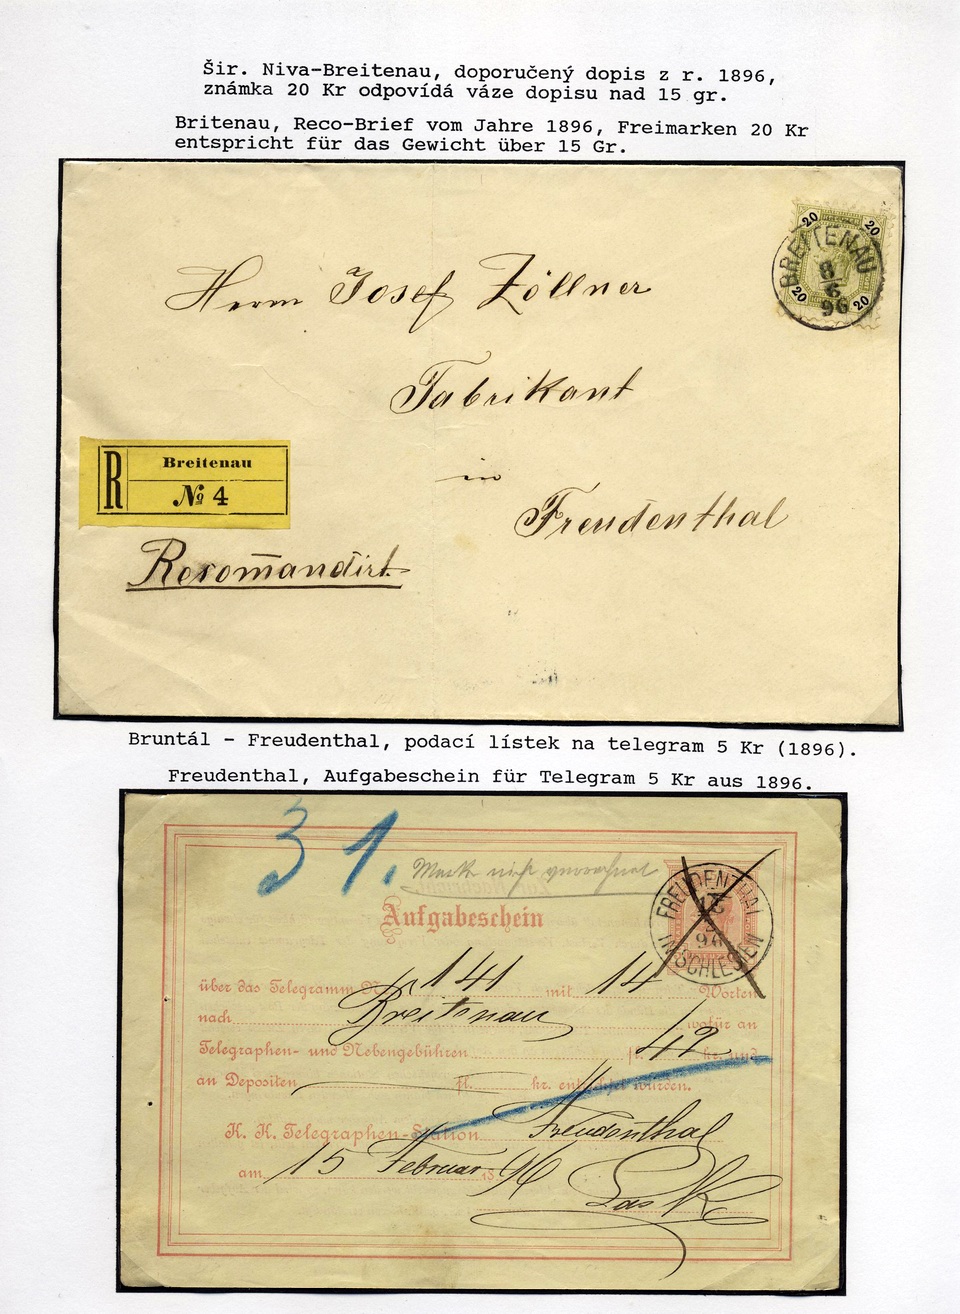 Šir. Niva-Breitenau, doporučený dopis z r. 1896,
známka 20 Kr odpovídá váze dopisu nad 15 gr.
Britenau, Reco-Brief vom Jahre 1896, Freimarken 20 Kr
entspricht für das Gewicht über 15 Gr.
20 20
BREITENAU
8/6
96
20 20
Herrn Josef Zöllner
Fabrikant
in
Freudenthal
R Breitenau
№ 4
Recomandirt
Bruntál - Freudenthal, podací lístek na telegram 5 Kr (1896).
Freudenthal, Aufgabeschein für Telegram 5 Kr aus 1896.
31.
Mark nicht
FREUDENTHAL
96
IN SCHLESIEN
Aufgabeschein
über das Telegramm Nr. 141 mit 14 Worten
nach Breitenau wofür an
Telegraphen- und Nebengebühren fl. 42 kr. und
an Depositen fl. kr. entrichtet wurden.
K. K. Telegraphen-Station Freudenthal
am 15 Februar 1896